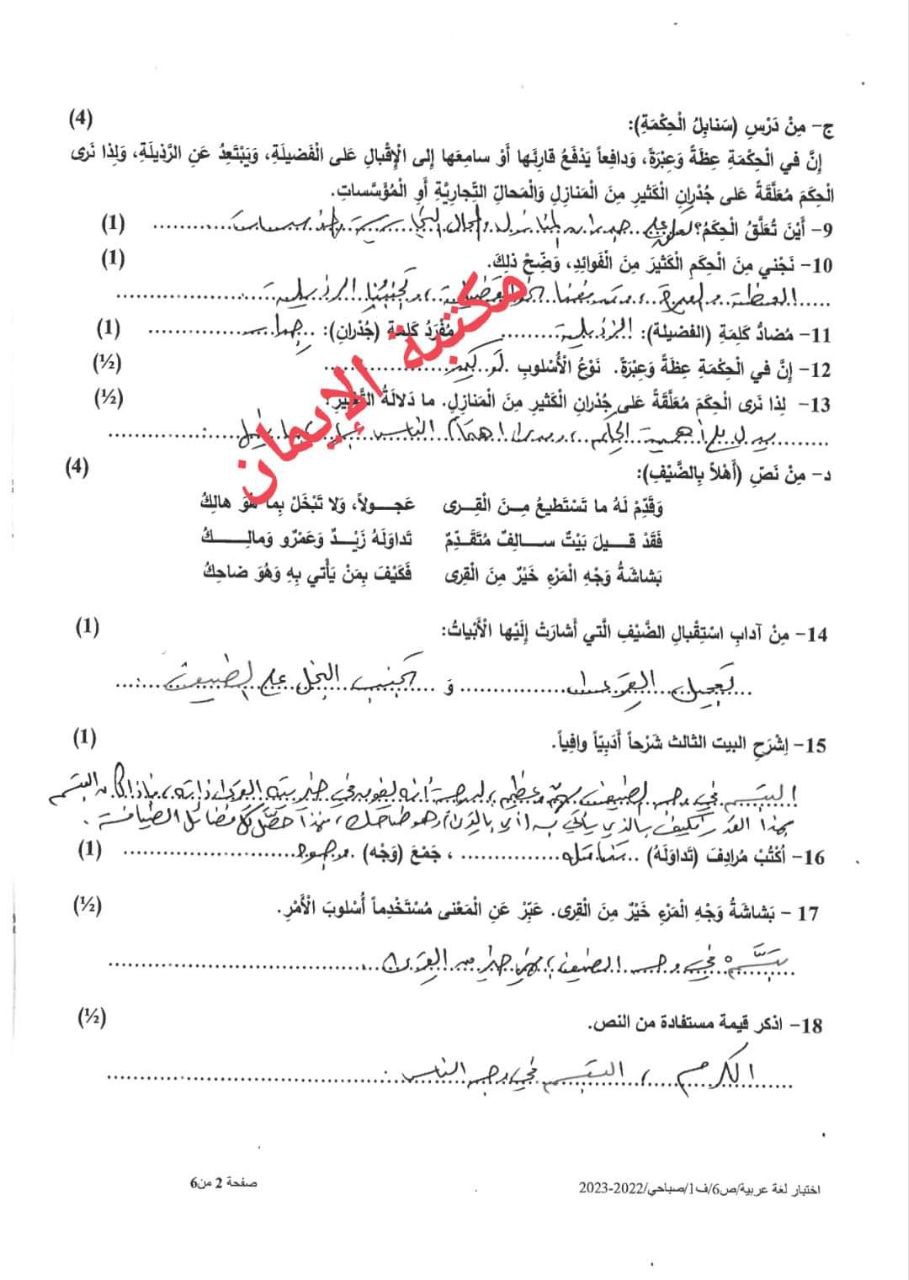 ج- مِنْ دَرْسِ (سَنابِلُ الْحِكْمَةِ): (4)
إِنَّ في الْحِكْمَةِ عِظَةً وَعِبْرَةً، وَدافعاً يَدْفَعُ قارِئَها أَوْ سامِعَها إلى الإِقْبالِ عَلى الْفَضيلَةِ، وَيَبْتَعِدُ عَنِ الرَّذيلَةِ، وَلِذا نَرى
الْحِكَمَ مُعَلَّقَةً عَلى جُدْرانِ الْكَثيرِ مِنَ الْمَنازِلِ وَالْمَحالِّ التِّجارِيَّةِ أَوِ الْمُؤَسَّساتِ.
9- أَيْنَ تُعَلَّقُ الْحِكَمُ؟ تعلق على جدران المنازل والمحال التجارية (1)
10- نَجْني مِنَ الْحِكَمِ الْكَثيرَ مِنَ الْفَوائِدِ، وَضِّحْ ذلِكَ. (1)
العظة والعبرة، وتدفعنا الفضيلة، وتجنبنا الرذيلة
11- مُضادُّ كَلِمَةِ (الفَضيلة): الرذيلة مُفْرَدُ كَلِمَةِ (جُدْرانِ): جدار (1)
12- إِنَّ في الْحِكْمَةِ عِظَةً وَعِبْرَةً. نَوْعُ الْأُسْلوبِ توكيد (½)
13- لِذا نَرى الْحِكَمَ مُعَلَّقَةً عَلى جُدْرانِ الْكَثيرِ مِنَ الْمَنازِلِ. ما دَلالَةُ التَّعْبيرِ. (½)
يدل على أهمية الحكم، ومدى اهتمام الناس
مكتبة الإيمان
د- مِنْ نَصّ (أَهْلاً بِالضَّيْفِ): (4)
وَقَدِّمْ لَهُ ما تَسْتَطيعُ مِـنَ الْقِـرى عَجـولاً، وَلا تَبْخَلْ بِما هُوَ هالِكُ
فَقَدْ قـيـلَ بَيْتٌ سـالِفٌ مُتَقَدِّمٌ تَداوَلَهُ زَيْـدٌ وَعَمْرٌو وَمالِـكُ
بَشاشَةُ وَجْهِ الْمَرْءِ خَيْرٌ مِنَ الْقِرى فَكَيْفَ بِمَنْ يَأْتي بِهِ وَهُوَ ضاحِكُ
14- مِنْ آدابِ اسْتِقْبالِ الضَّيْفِ الَّتي أَشارَتْ إِلَيْها الْأَبْياتُ: (1)
تعجيل القرى وَ تجنب البخل على الضيف
15- اِشْرَحِ البيت الثالث شَرْحاً أَدَبِيّاً وافِياً. (1)
التبسم في وجه الضيف عظيم، لدرجة أنه يفوقه في خيريته القرى ذاته، فإذا كان التبسم
بهذا القدر فكيف بالذي يأتي به (أي بالقرى) وهو ضاحك، فهذا حصّل كل فضائل الضيافة.
16- اُكْتُبْ مُرادِفَ (تَداوَلَهُ) تناقله، جَمْعَ (وَجْه) وجوه (1)
17 - بَشاشَةُ وَجْهِ الْمَرْءِ خَيْرٌ مِنَ الْقِرى. عَبِّرْ عَنِ الْمَعْنى مُسْتَخْدِماً أُسْلوبَ الْأَمْرِ. (½)
في وجه الضيف، فهو خير من القرى
18- اذكر قيمة مستفادة من النص. (½)
الكرم، التبسم في وجه الناس.
اختبار لغة عربية/ص6/ف1/صباحي/2022-2023 صفحة 2 من6